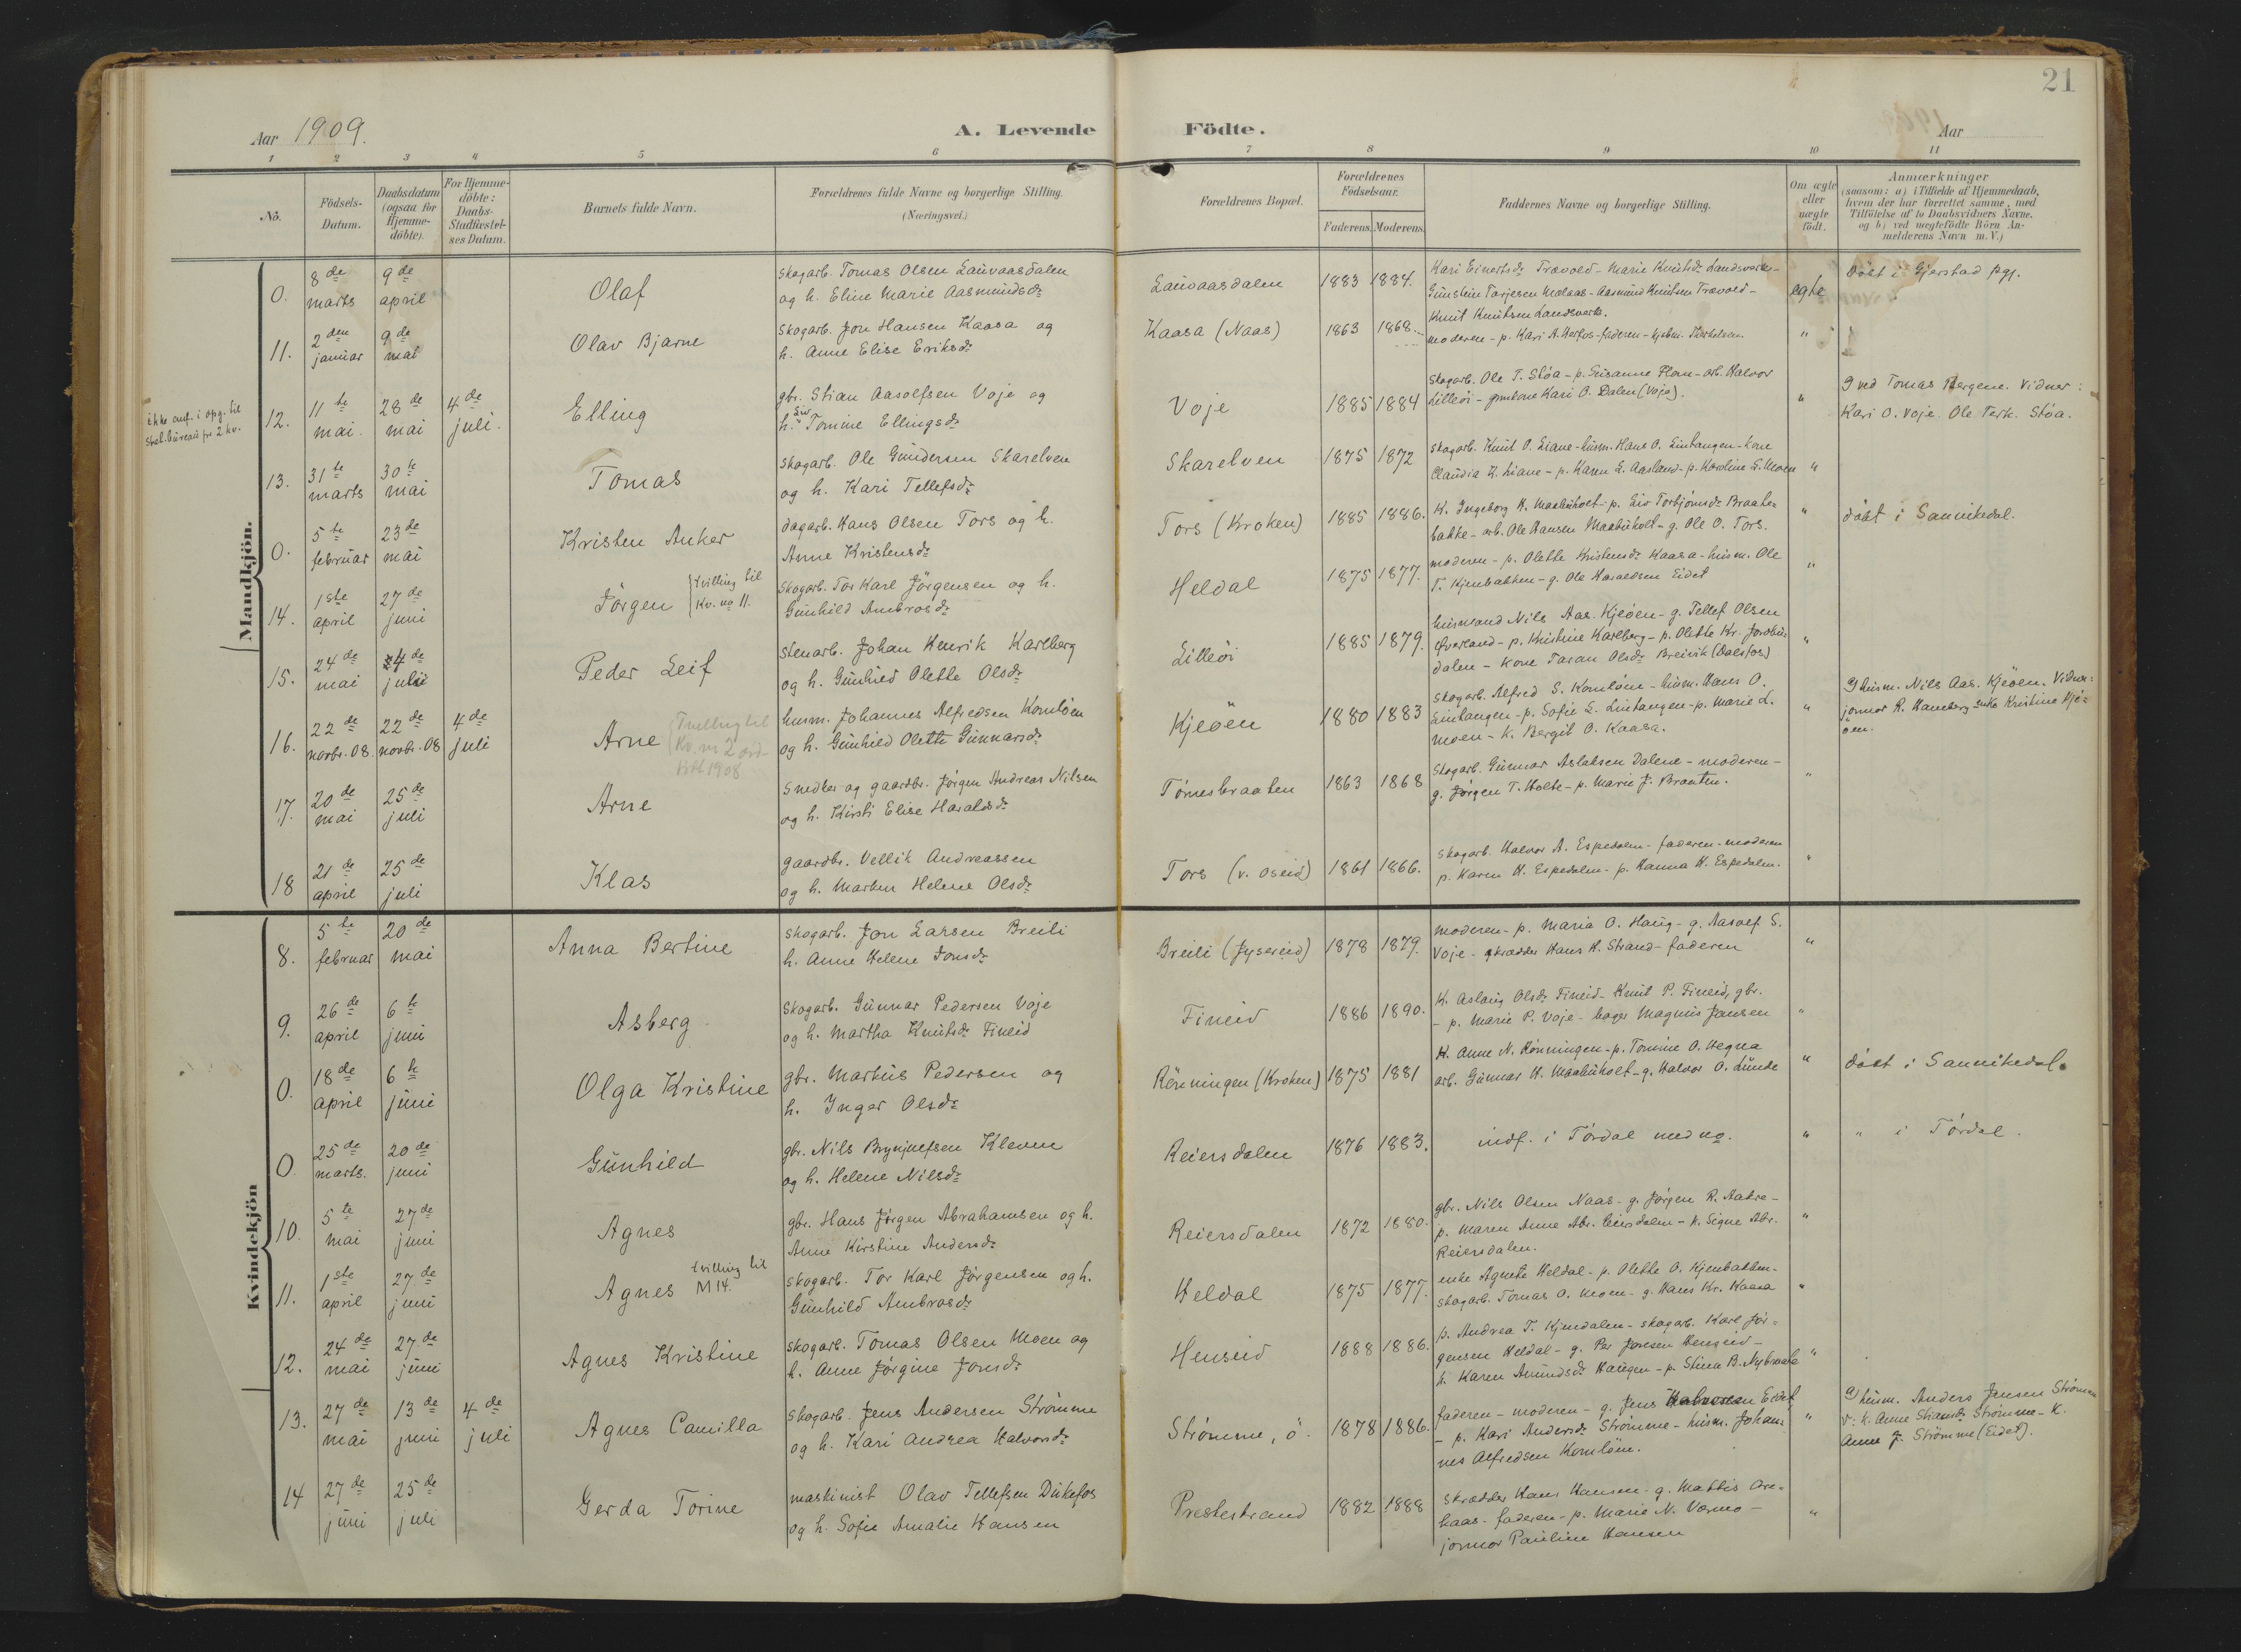 21
Aar 1909.
A. Levende Födte.
Aar
1 2 3 4 5 6 7 8 9 10 11
No.
Födsels-Datum.
Daabsdatum (ogsaa for Hjemme-döbte).
For Hjemme-döbte: Daabs-Stadfæstel-ses Datum.
Barnets fulde Navn.
Forældrenes fulde Navne og borgerlige Stilling.
(Næringsvei.)
Forældrenes Bopæl.
Forældrenes Födselsaar.
Faderens. Moderens.
Faddernes Navne og borgerlige Stilling.
Om ægte eller uægte födt.
Anmærkninger
(saasom: a) i Tilfælde af Hjemmedaab,
hvem der har forrettet samme, med
Tilföielse af to Daabsvidners Navne.
og b) ved uægtefödte Börn An-
melderens Navn m.V.)
Mandkjön.
0. 8de marts 9de april Olaf
skogarb. Tomas Olsen Lauvaasdalen
og h. Eline Marie Aasmundsdr
Lauvaasdalen 1883 1884.
Kari Einertsdr Trævold - Marie Knutsdr Landsverk-
Gunstein Tarjesen Molaas - Aasmund Knutsen Trævold -
Knut Knutsen Landsverk.
egte
döbt i Gjerstad pgj.
11. 2den januar 9de mai Olav Bjarne
skogarb. Jon Hansen Kaasa og
h. Anne Elise Eriksdr
Kaasa (Naas) 1863 1868
moderen - p. Kari A. - faderen -
"
ikke anf. i opg. til
stat.bureau for 2 kv.
12. 11te mai. 28de mai 4de juli. Elling
gbr. Stian Aasolfsen Voje og
h. Siv Tomine Ellingsdr
Voje 1885 1884
skogarb. Ole T. Stöa - p. Susanne Plan - arb. Halvor
Lilleöi - Kari O. Dalen (Voje).
"
ved Tomas Bergene. Vidner:
Kari O. Voje. Ole Terk. Stöa.
13. 31te marts 30te mai Tomas
skogarb. Ole Gundersen Skarelven
og h. Kari Tellefsdr
Skarelven 1875 1872
skogarb. Knut O. Liane - husm. Hans O. Lintangen - kone
Claudia K. Liane - p. Karen L. Aasland - p. Karoline G. Moen
"
0. 5te februar 23de mai Kristen Anker
dagarb. Hans Olsen Tors og h.
Anne Kristensdr
Tors (Kroken) 1885 1886.
K. Ingeborg H. Maabuholt - p. Liv Torbjörnsdr Braate-
bakke - arb. Ole Hansen Maabuholt - g. Ole O. Tors.
"
döbt i Sannikedal.
14. 1ste april 27de juni Jörgen
tvilling til
Kv. no 11.
Skogarb. Tor Karl Jörgensen og h.
Gunhild Ambrosdr
Heldal 1875 1877.
moderen - p. Olette Kristensdr Kaasa - husm. Ole
T. Kjenbakken - g. Ole Haraldsen Eidet
"
15. 24de mai 4de juli Peder Leif
stenarb. Johan Henrik Karlberg
og h. Gunhild Olette Olsdr
Lilleöi 1885 1879.
husmand Nils Aas. Kjeöen - g. Tellef Olsen
Överland - p. Kristine Karlberg - p. Olette Kr.
dalen - kone Taran Olsdr Breivik (Dalsfos)
"
16. 22de novbr. 08. 22de novbr. 08 4de juli Arne
Tvilling til
Kv. no 2
1908
husm. Johannes Alfredsen Komlöen
og h. Gunhild Olette Gunnarsdr
Kjeöen 1880 1883
skogarb. Alfred S. Komlöen - husm. Hans O.
Lintangen - p. Sofie L. Lintangen - p. Marie L.
Moen - K. Bergit O. Kaasa.
"
husm. Nils Aas. Kjeöen. Vidner:
jormor R. Hamberg enke Kristine Kjö-
öen.
17. 20de mai 25de juli Arne
Snedker og gaardbr. Jörgen Andreas Nilsen
og h. Kirsti Elise Haraldsdr
Törnesbraaten 1863 1868
Skogarb. Gunnar Aslaksen Dalene - moderen -
g. Jörgen T. Holte - p. Marie J. Braaten.
"
18 21de april 25de juli Klas
gaardbr. Vellik Andreassen
og h. Marten Helene Olsdr
Tors (v. Oseid) 1861 1866.
skogarb. Halvor A. Espedalen - faderen - moderen
p. Karen H. Espedalen - p. Hanna H. Espedalen.
"
Kvindekjön
8. 5te februar 20de mai Anna Bertine
skogarb. Jon Larsen Breili
h. Anne Helene Jonsdr
Breili (Jysereid) 1878 1879.
moderen - p. Maria O. Haug - g. Aasolf S.
Voje - skrædder Hans H. Strand - faderen
"
9. 26de april 6te juni Asberg.
Skogarb. Gunnar Pedersen Voje
og h. Martha Knutsdr Fineid
Fineid 1886 1890.
K. Aslaug Olsdr Fineid - Knut P. Fineid, gbr.
- p. Marie P. Voje - bager Magnus Jansen
"
0. 18de april 6te juni Olga Kristine
gbr. Markus Pedersen og
h. Inger Olsdr
Rönningen (Kroken) 1875 1881
K. Anne N. Rönningen - p. Tomine O. Hegna
arb. Gunnar H. Maabuholt - g. Halvor O. Lunde
"
döbt i Sannikedal.
0. 25de marts. 20de juni Gunhild
gbr. Nils Brynjulfsen Kleven
og h. Helene Nilsdr
Reiersdalen 1876 1883.
indf. i Tördal med no.
"
" i Tördal.
10. 5te mai 27de juni Agnes
gbr. Hans Jörgen Abrahamsen og h.
Anne Kirstine Andersdr
Reiersdalen 1872 1880.
gbr. Nils Olsen Naas - g. Jörgen R. Aakre -
p. Maren Anne Abr. Reiersdalen - K. Signe Abr.
Reiersdalen.
"
11. 1ste april 27de juni Agnes
tvilling til
M 14.
skogarb. Tor Karl Jörgensen og h.
Gunhild Ambrosdr
Heldal 1875 1877.
enke Agnete Heldal - p. Olette O. Kjenbakken -
skogarb. Tomas O. Moen - g. Hans Kr. Kaasa
"
12. 24de mai 27de juni Agnes Kristine
skogarb. Tomas Olsen Moen og
h. Anne Jörgine Jonsdr
Henseid 1888 1886.
p. Andrea T. Kjendalen - skogarb. Karl Jör-
gensen Heldal - g. Per Jonsen Henseid -
K. Karen Amundsdr Haugen - p. Stina B. Nybraate
"
13. 27de mai 13de juni 4de juli Agnes Camilla
skogarb. Jens Andersen Strömme
og h. Kari Andrea Halvorsdr
Strömme, ö. 1878 1886.
faderen - moderen - g. Jens Halvorsen Eidet
- p. Kari Andersdr Strömme - husm. Johan-
nes Alfredsen Komlöen.
"
a) husm. Anders Jensen Strömme
v: k. Anne Strömme - K.
Anne J. Strömme (Eidet).
14 27de juni 25de juli Gerda Torine
maskinist Olav Tellefsen Dukefos
og h. Sofie Amalie Hansen
Prestestrand 1882 1888
skrædder Hans Hansen - g. Mattis Are-
kaas - faderen - p. Marie N. Værmo -
jormor Pauline Hansen
"